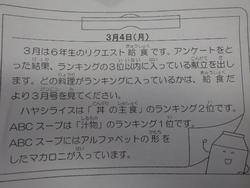 3月4日(月)
3月は6年生のリクエスト給食です。アンケートをとっ
た結果、ランキングの3位以内に入っている献立を出し
ます。どの料理がランキングに入っているかは、給食だ
より3月号を見てください。
ハヤシライスは「丼の主食」のランキング2位です。
ABCスープは「汁物」のランキング1位です。
ABCスープにはアルファベットの形を
したマカロニが入っています。